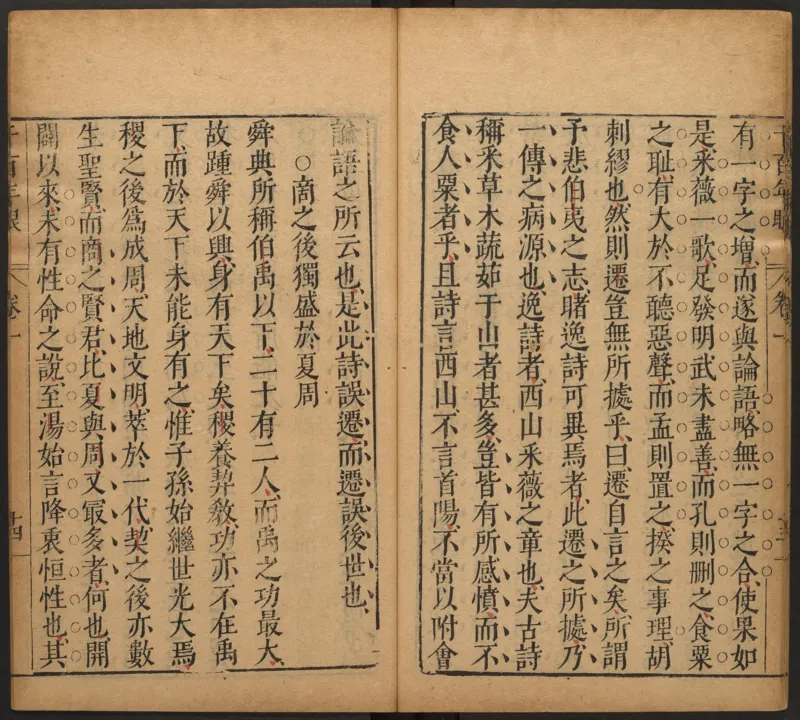 有一字之增而遂與論語略無一字之合使果如
是采薇一歌足發明武未盡善而孔則刪之食粟
之恥有大於不聽惡聲而孟則置之揆之事理胡
刺繆也然則遷豈無所據乎曰遷自言之矣所謂
予悲伯夷之志睹逸詩可異焉者此遷之所據乃
一傳之病源也逸詩者西山采薇之章也夫古詩
稱采草木蔬茹于山者甚多豈皆有所感憤而不
食人粟者乎且詩言西山不言首陽不當以附會
論語之所云也是此詩誤遷而遷誤後世也
○商之後獨盛於夏周
舜典所稱伯禹以下二十有二人而禹之功最大
故踵舜以興身有天下矣稷養契敎功亦不在禹
下而於天下未能身有之惟子孫始繼世光大焉
稷之後爲成周天地文明萃於一代契之後亦數
生聖賢而商之賢君比夏與周又㝡多者何也開
闢以來未有性命之說至湯始言降衷恒性也其
千百年眼 卷一 十四